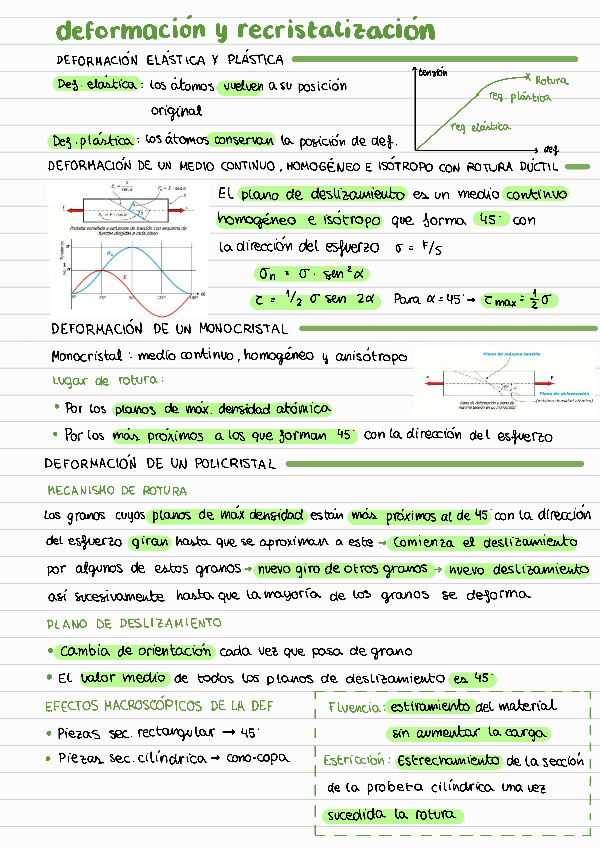 deformación y recristalización
DEFORMACIÓN ELÁSTICA Y PLÁSTICA
Def. elástica: los átomos vuelven a su posición
original
Def. plástica: los átomos conservan la posición de def.
tensión
Rotura
reg. plástica
reg elástica
def
DEFORMACIÓN DE UN MEDIO CONTINUO, HOMOGÉNEO E ISÓTROPO CON ROTURA DÚCTIL
Probeta sometida a esfuerzo de tracción con esquema de
fuerzas dirigidas a cada plano
El plano de deslizamiento es un medio continuo
homogéneo e isótropo que forma 45° con
la dirección del esfuerzo σ = F/S
σn = σ · sen²α
τ = 1/2 σ sen 2α Para α = 45° → τmax = 1/2 σ
DEFORMACIÓN DE UN MONOCRISTAL
Monocristal: medio continuo, homogéneo y anisótropo
Lugar de rotura:
• Por los planos de máx. densidad atómica
• Por los más próximos a los que forman 45° con la dirección del esfuerzo
Plano de máxima tensión
Plano de deformación
(máxima densidad atómica)
Plano de deformación y plano de
máxima tensión en un monocristal
DEFORMACIÓN DE UN POLICRISTAL
MECANISMO DE ROTURA
Los granos cuyos planos de máx densidad están más próximos al de 45° con la dirección
del esfuerzo giran hasta que se aproximan a este → Comienza el deslizamiento
por algunos de estos granos → nuevo giro de otros granos → nuevo deslizamiento
así sucesivamente hasta que la mayoría de los granos se deforma
PLANO DE DESLIZAMIENTO
• Cambia de orientación cada vez que pasa de grano
• El valor medio de todos los planos de deslizamiento es 45°
EFECTOS MACROSCÓPICOS DE LA DEF
• Piezas sec. rectangular → 45°
• Piezas sec. cilíndrica → cono-copa
Fluencia: estiramiento del material
sin aumentar la carga
Estricción: Estrechamiento de la sección
de la probeta cilíndrica una vez
sucedida la rotura